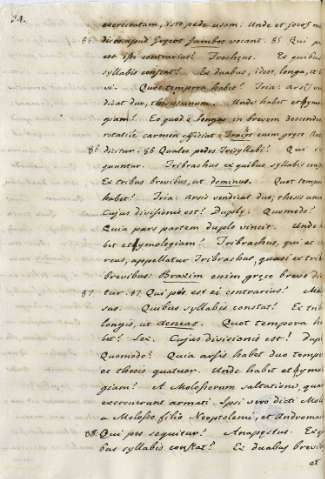 34.
exercentam, isto pede usam. Unde et
85. dicos apud Græcos Iambes vocant. 85 Qui p
est ipsi contrarius? Trochæus. Ex quibus
syllabis constat? Ex duabus, idest, longa, et
Quot tempora habet? Tria: arsis
dicat duo, thesis unum. Unde habet etÿm
giam? Eo quod e longas in brevem
rotatile carmen efficiat Græce
86 dicitur. 86 Quales pedes Trisyllabi? Qui
quuntur. Tribrachus ex quibus syllabis con
Ex tribus brevibus, ut dominus. Quot tempo
habet? Tria: arsis vendicat duo, thesis un
Cujus divisionis est? Duply. Quomodo?
Quia pars partem duplo vincit. Unde
bet etÿmologiam? Tribrachus, qui et
reus, appellatur Tribrachus, quasi ex tri
brevibus: Braxim enim græce breve di
87. tur. 87 Qui pes est ei contrarius? Mo
sus. Quibus syllabis constat? Ex tri
longis, ut æneas. Quot tempora ha
bet? Sex. Cujus divisionis est? Dupl
Quomodo? Quia arsis habet duo tempo
et thesis quatuor. Unde habet etÿm
giam? A Molossorum saltatione, qua
exercuerunt armati. Ipsi vero dicti Molo
a Molosso filio Neoptolemi, et Androma
88. Qui pes sequitur? Anapæstus. Ex q
bus syllabis constat? Ex duabus brevib
et